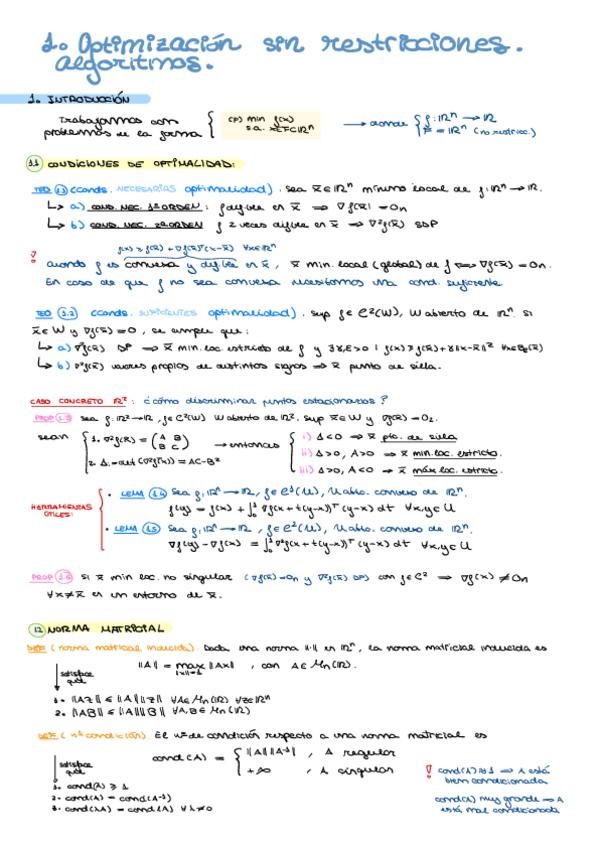 1. Optimización sin restricciones.
Algoritmos.
1. INTRODUCCIÓN
Trabajamos con problemas de la forma { (P) min f(x) s.a. x∈F⊂ℝⁿ → donde { f:ℝⁿ → ℝ F = ℝⁿ (no restricc.)
1.1 CONDICIONES DE OPTIMALIDAD:
TEO 1.1 (conds. NECESARIAS optimalidad). Sea x̄∈ℝⁿ mínimo local de f:ℝⁿ → ℝ.
↳ a) COND. NEC. 1º ORDEN: f difble en x̄ ⇒ ∇f(x̄) = 0n
↳ b) COND. NEC. 2º ORDEN f 2 veces difble en x̄ ⇒ ∇²f(x̄) SDP
f(x) ≥ f(x̄) + ∇f(x̄)ᵀ(x-x̄) ∀x∈ℝⁿ
! Cuando f es convexa y difble en x̄, x̄ min. local (global) de f ⟺ ∇f(x̄) = 0n.
En caso de que f no sea convexa necesitamos una cond. suficiente
TEO 1.2 (conds. SUFICIENTES optimalidad). Sup f∈C²(W), W abierto de ℝⁿ. Si
x̄∈W y ∇f(x̄) = 0, se cumple que:
↳ a) ∇²f(x̄) DP ⇒ x̄ min. loc. estricto de f y ∃γ,ε>0 | f(x) ≥ f(x̄) + γ||x-x̄||² ∀x∈Bε(x̄)
↳ b) ∇²f(x̄) valores propios de distintos signos ⇒ x̄ punto de silla.
CASO CONCRETO ℝ²: ¿cómo discriminar puntos estacionarios?
PROP 1.3 Sea f:ℝ²→ℝ, f∈C²(W) W abierto de ℝ². Sup x̄∈W y ∇f(x̄) = 0₂.
Sean { 1. ∇²f(x̄) = (A B / B C) 2. Δ = det(∇²f(x̄)) = AC-B² → entonces { i) Δ<0 ⇒ x̄ pto. de silla
ii) Δ>0, A>0 ⇒ x̄ min. loc. estricto.
iii) Δ>0, A<0 ⇒ x̄ máx. loc. estricto.
HERRAMIENTAS ÚTILES:
• LEMA 1.4 Sea f:ℝⁿ → ℝ, f∈C¹(U), U abto. convexo de ℝⁿ.
f(y) = f(x) + ∫₀¹ ∇f(x + t(y-x))ᵀ (y-x) dt ∀x,y∈U
• LEMA 1.5 Sea f:ℝⁿ → ℝ, f∈C²(U), U abto. convexo de ℝⁿ.
∇f(y) - ∇f(x) = ∫₀¹ ∇²f(x + t(y-x))ᵀ (y-x) dt ∀x,y∈U
PROP 1.6 Si x̄ min loc. no singular (∇f(x̄) = 0n y ∇²f(x̄) DP) con f∈C² ⇒ ∇f(x) ≠ 0n
∀x≠x̄ en un entorno de x̄.
1.2 NORMA MATRICIAL
DEF (norma matricial inducida). Dada una norma ||·|| en ℝⁿ, la norma matricial inducida es
||A|| = max ||Ax||, con A∈Mn(ℝ).
||x||=1
satisface que
1. ||Az|| ≤ ||A|| ||z|| ∀A∈Mn(ℝ) ∀z∈ℝⁿ
2. ||AB|| ≤ ||A|| ||B|| ∀A,B∈Mn(ℝ)
DEF (nº condición) El nº de condición respecto a una norma matricial es
cond(A) = { ||A|| ||A⁻¹||, A regular
+∞, A singular
satisface que
1. cond(A) ≥ 1
2. cond(A) = cond(A⁻¹)
3. cond(λA) = cond(A) ∀λ≠0
! cond(A) ≈ 1 ⇒ A está
bien condicionada
cond(A) muy grande ⇒ A
está mal condicionada